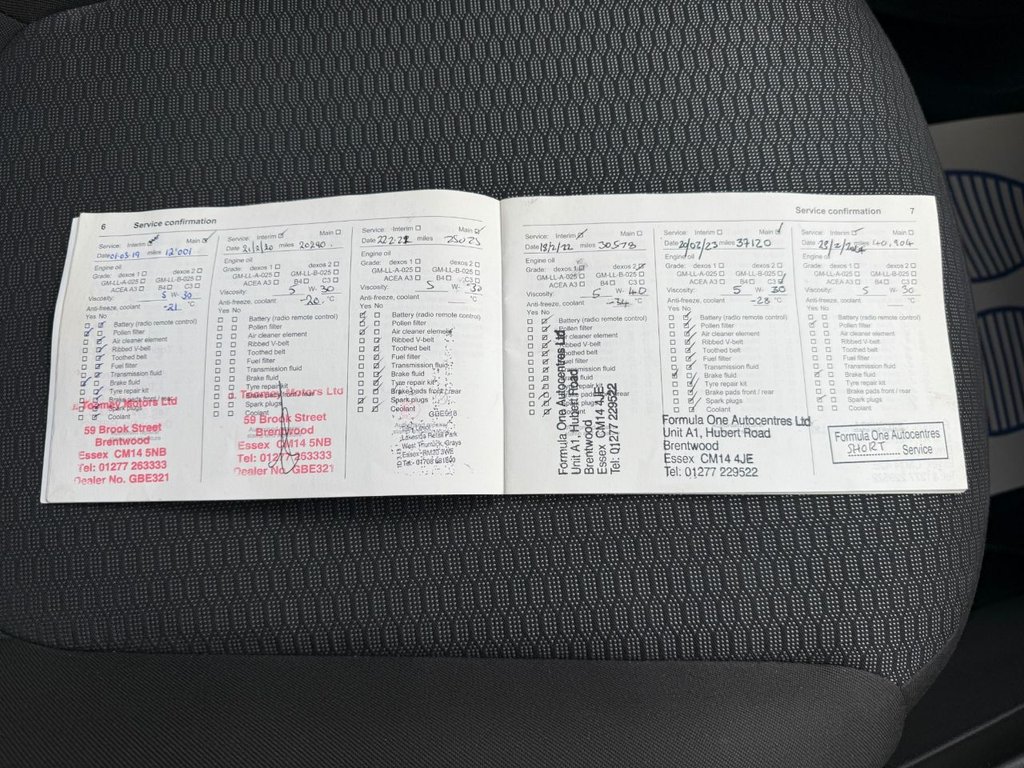 6 Service confirmation
Service: Interim Main
Date 01-03-19 miles 12'001
Engine oil
Grade: dexos 1 dexos 2
GM-LL-A-025 GM-LL-B-025
ACEA A3 B4 C3
Viscosity: 5 W- 30
Anti-freeze, coolant -21 °C
Yes No
Battery (radio remote control)
Pollen filter
Air cleaner element
Ribbed V-belt
Toothed belt
Fuel filter
Transmission fluid
Brake fluid
Tyre repair kit
Coolant
Toomey Motors Ltd
59 Brook Street
Brentwood
Essex CM14 5NB
Tel: 01277 263333
Dealer No. GBE321
Service: Interim Main
Date 21/2/20 miles 20280.
Engine oil
Grade: dexos 1 dexos 2
GM-LL-A-025 GM-LL-B-025
ACEA A3 B4 C3
Viscosity: 5 W- 30
Anti-freeze, coolant -20 °C
Yes No
Battery (radio remote control)
Pollen filter
Air cleaner element
Ribbed V-belt
Toothed belt
Fuel filter
Transmission fluid
Brake fluid
Tyre repair kit
Brake pads front / rear
Spark plugs
Coolant
Motors Ltd
59 Brook Street
Brentwood
Essex CM14 5NB
Tel: 01277 263333
Dealer No. GBE321
Service: Interim Main
Date 22.2.21 miles 25023
Engine oil
Grade: dexos 1 dexos 2
GM-LL-A-025 GM-LL-B-025
ACEA A3 B4 C3
Viscosity: 5 W- 30
Anti-freeze, coolant °C
Yes No
Battery (radio remote control)
Pollen filter
Air cleaner element
Ribbed V-belt
Toothed belt
Fuel filter
Transmission fluid
Brake fluid
Tyre repair kit
Brake pads front / rear
Spark plugs
Coolant
Lakeside Retail Park
West Thurrock, Grays
Essex RM20 3WE
Service confirmation 7
Service: Interim Main
Date 18/2/22 miles 30578
Engine oil
Grade: dexos 1 dexos 2
GM-LL-A-025 GM-LL-B-025
ACEA A3 B4 C3
Viscosity: 5 W- 40
Anti-freeze, coolant -34 °C
Yes No
Battery (radio remote control)
Pollen filter
Air cleaner element
Ribbed V-belt
Toothed belt
Fuel filter
Transmission fluid
Brake fluid
Formula One Autocentres Ltd
Unit A1, Hubert Road
Brentwood
Essex CM14 4JE
Tel: 01277 229522
Service: Interim Main
Date 20/02/23 miles 37120
Engine oil
Grade: dexos 1 dexos 2
GM-LL-A-025 GM-LL-B-025
ACEA A3 B4 C3
Viscosity: 5 W- 30
Anti-freeze, coolant -28 °C
Yes No
Battery (radio remote control)
Pollen filter
Air cleaner element
Ribbed V-belt
Toothed belt
Fuel filter
Transmission fluid
Brake fluid
Tyre repair kit
Brake pads front / rear
Spark plugs
Formula One Autocentres Ltd
Unit A1, Hubert Road
Brentwood
Essex CM14 4JE
Tel: 01277 229522
Service: Interim Main
Date 28/2/2024 miles 40,904
Engine oil
Grade: dexos 1 dexos 2
GM-LL-A-025 GM-LL-B-025
ACEA A3 B4 C3
Viscosity: 5 W- 30
Anti-freeze, coolant °C
Yes No
Battery (radio remote control)
Pollen filter
Air cleaner element
Ribbed V-belt
Toothed belt
Fuel filter
Transmission fluid
Brake fluid
Tyre repair kit
Brake pads front / rear
Spark plugs
Coolant
Formula One Autocentres
SHORT Service